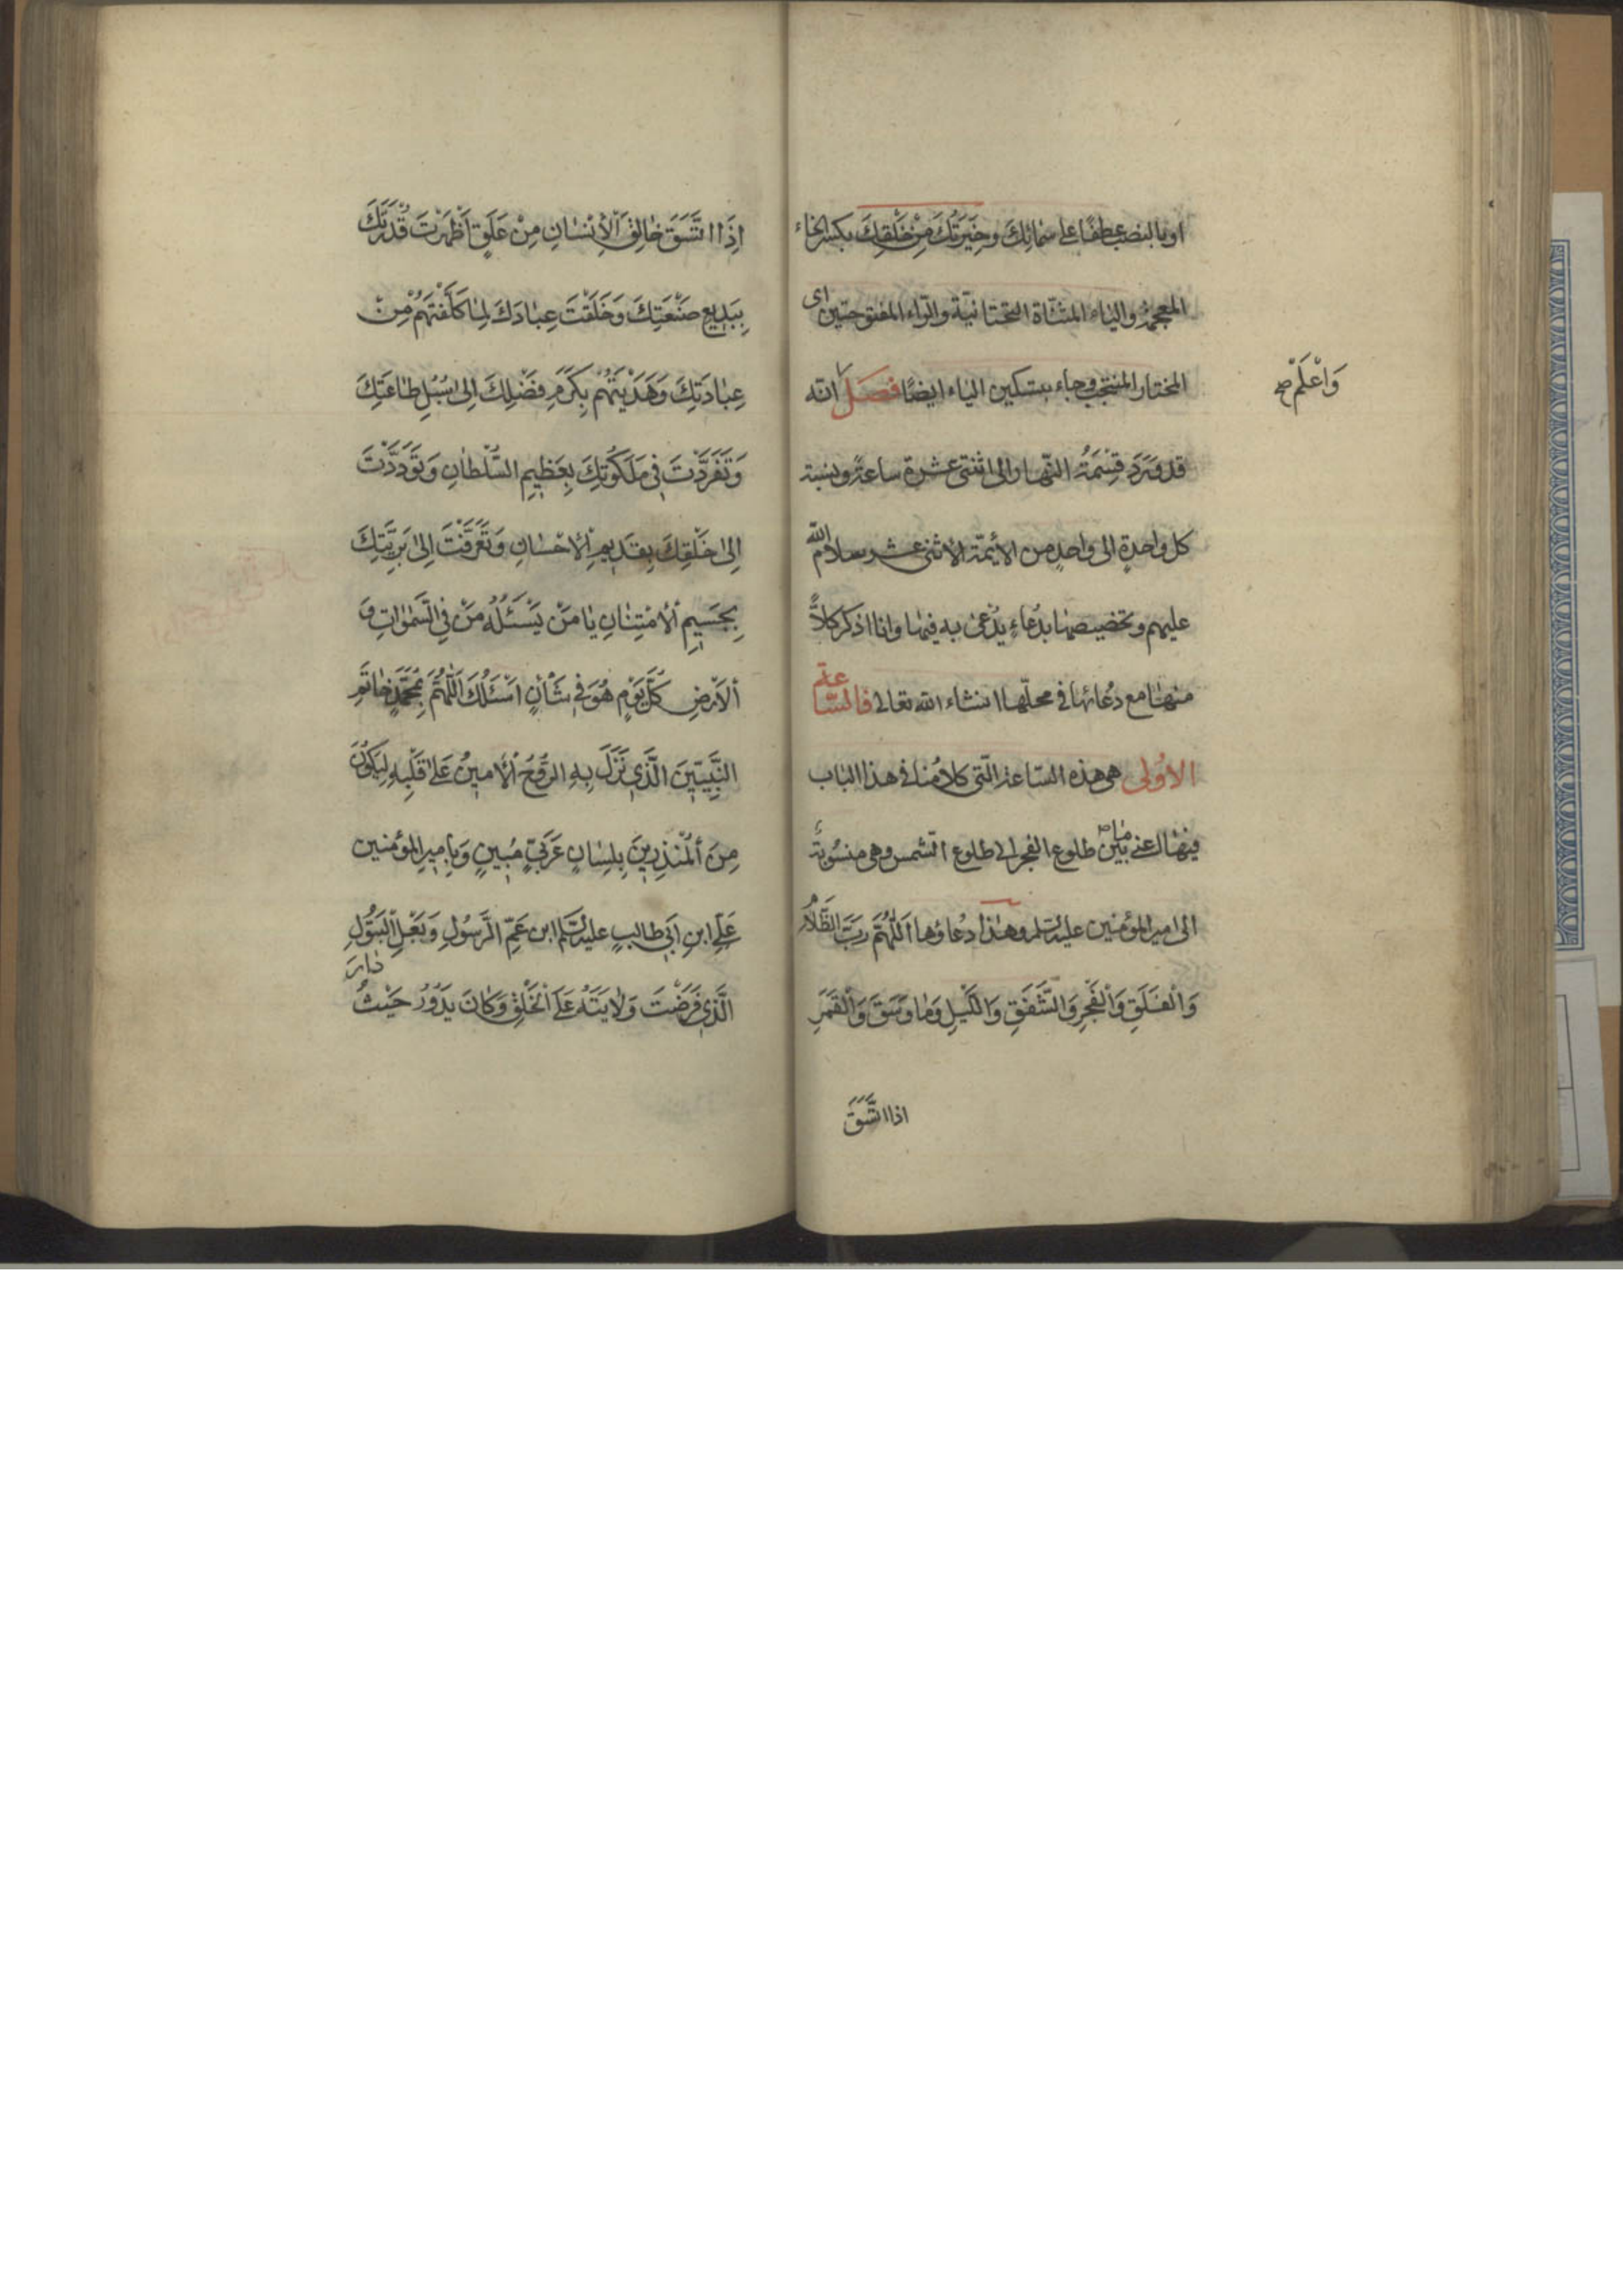 او بالنصب عطفًا على سمائِكَ وَخِيَرَتُكَ مِنْ خَلْقِكَ بكسر الخاء
المعجمة والياء المثنّاة التحتانيّة والرّاء المفتوحتين اى
المختار المنتجب وجاء بتسكين الياء ايضًا فصَل انّه
وَاعْلَمْ صح
قد وَرَدَ قِسْمَةُ النّهار الى اثنتى عشرة ساعةً ونسبة
كل واحدةٍ الى واحدٍ من الأيمّة الاثنى عشر سلام الله
عليهم وتخصيصها بدُعاءٍ يُدْعى به فيها وانا اذكر كلاًّ
منها مع دُعائها فى محلّها انشاء الله تعالى فالسّاعة
الاُولى هى هذه السّاعة الّتى كلامُنا فى هذا الباب
فيها اعنى ما بين طلوع الفجر الى طلوع الشّمس وهى منسُوبة
الى امير المؤمنين عليه السّلم وهذا دُعاؤها اَللّهُمَّ رَبَّ الظَّلاَمِ
وَالْفَلَقِ وَالْفَجْرِ وَالشَّفَقِ وَاللَّيْلِ وَمَا وَسَقَ وَالْقَمَرِ
اذا اتَّسَقَ
اِذَا اتَّسَقَ خالِقَ الْاِنْسانِ مِنْ عَلَقٍ اَظْهَرْتَ قُدْرَتَكَ
بِبَديعِ صَنْعَتِكَ وَخَلَقْتَ عِبادَكَ لِما كَلَّفْتَهُمْ مِنْ
عِبادَتِكَ وَهَدَيْتَهُمْ بِكَرَمِ فَضْلِكَ اِلى سُبُلِ طاعَتِكَ
وَتَفَرَّدْتَ فى مَلَكُوتِكَ بِعَظيمِ السُّلْطانِ وَتَوَدَّدْتَ
اِلى خَلْقِكَ بِقَديمِ الْاِحْسانِ وَتَعَرَّفْتَ اِلى بَرِيَّتِكَ
بِجَسيمِ الْاِمْتِنانِ يا مَنْ يَسْئَلُهُ مَنْ فِى السَّمواتِ وَ
الْاَرْضِ كُلَّ يَوْمٍ هُوَ فى شَاْنٍ اَسْئَلُكَ اَللّهُمَّ بِمُحَمَّدٍ خاتَمِ
النَّبِيّينَ الَّذى نَزَلَ بِهِ الرُّوحُ الْاَمينُ عَلى قَلْبِهِ لِيَكُونَ
مِنَ الْمُنْذِرينَ بِلِسانٍ عَرَبِىٍّ مُبينٍ وَبِاَميرِ المؤمنين
عَلِىِّ ابْنِ اَبى طالبٍ عليه السّلم ابن عَمِّ الرَّسُولِ وَبَعْلِ الْبَتُولِ
الَّذى فَرَضْتَ وِلايَتَهُ عَلَى الْخَلْقِ وَكانَ يَدُورُ حَيْثُ دارَ